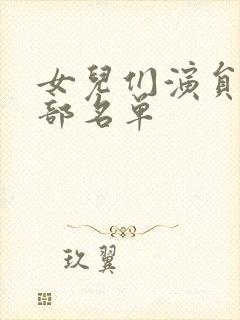 女兒们演員
部名单
玖翼